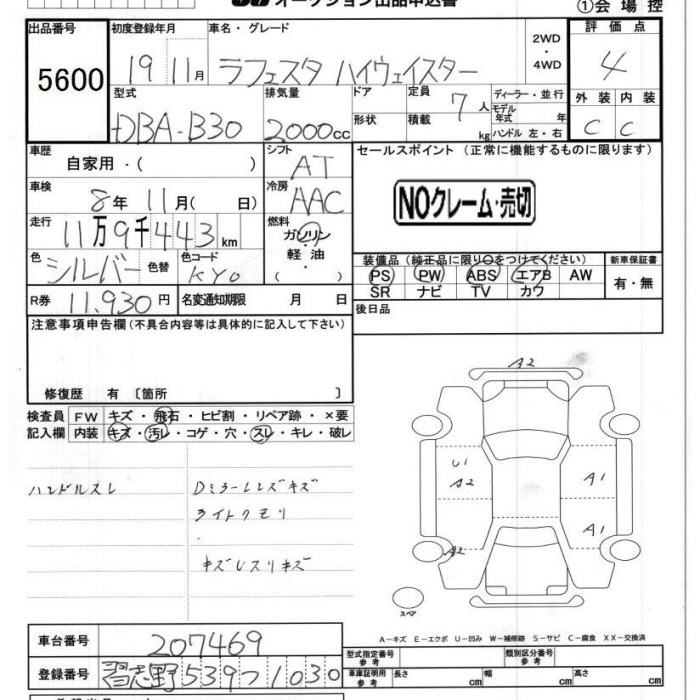 オークション出品申込書 ①会場控
出品番号 5600
初度登録年月 19 11月
車名・グレード ラフェスタ ハイウェイスター
2WD・4WD
評価点 4
型式 DBA-B30
排気量 2000cc
ドア形状
定員 7人
積載 kg
ディーラー・並行
モデル年式 年
ハンドル 左・右
外装 C 内装 C
車歴 自家用・( )
シフト AT
セールスポイント (正常に機能するものに限ります)
車検 8年 11月( 日)
冷房 AAC
NOクレーム・売切
走行 11万9千443km
燃料 ガソリン・軽油 ( )
色 シルバー 色替
色コード KY0
装備品 (純正品に限り○をつけてください) 新車保証書
PS PW ABS エアB AW 有・無
SR ナビ TV カワ
R券 11,930円
名変通知期限 月 日
後日品
注意事項申告欄 (不具合内容等は具体的に記入して下さい)
修復歴 有 〔箇所 〕
検査員 FW キズ・飛石・ヒビ割・リペア跡・×要
記入欄 内装 キズ・汚レ・コゲ・穴・スレ・キレ・破レ
ハンドルスレ
Dミラーレンズキズ
ライトクモリ
キズレスリキズ
A2
U1
A2
A1
A1
A2
スペア
A-キズ E-エクボ U-凹み W-補修跡 S-サビ C-腐食 XX-交換済
車台番号 207469
登録番号 習志野539つ1030
型式指定番号 参考
類別区分番号 参考
車庫証明用 参考 長さ cm 幅 cm 高さ cm